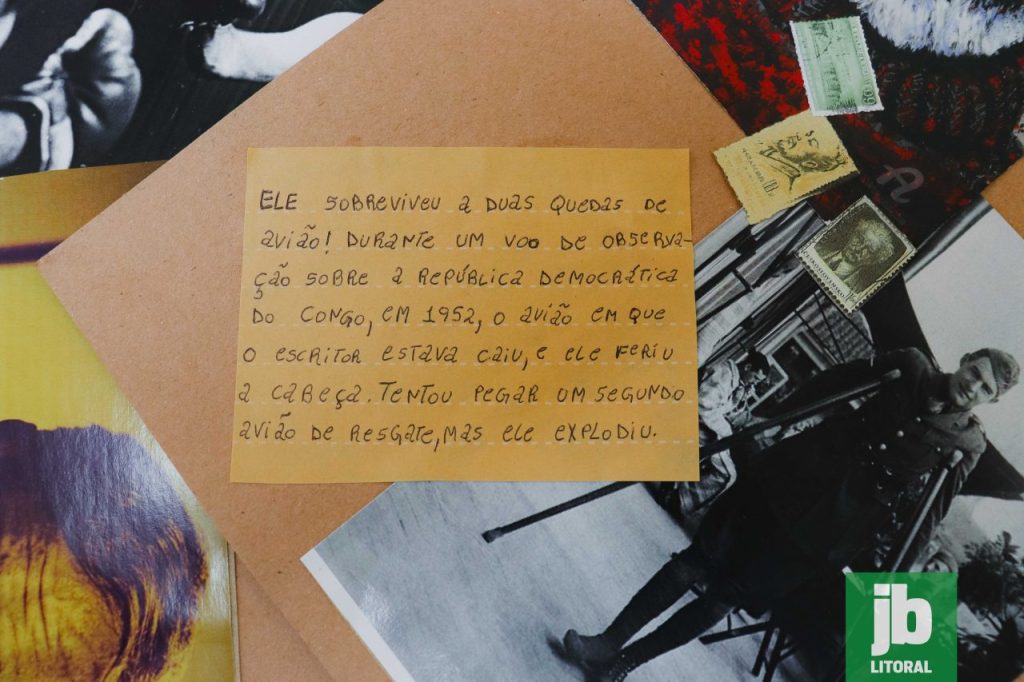 ELE SOBREVIVEU A DUAS QUEDAS DE
AVIÃO! DURANTE UM VOO DE OBSERVA-
ÇÃO SOBRE A REPÚBLICA DEMOCRÁTICA
DO CONGO, EM 1952, O AVIÃO EM QUE
O ESCRITOR ESTAVA CAIU, E ELE FERIU
A CABEÇA. TENTOU PEGAR UM SEGUNDO
AVIÃO DE RESGATE, MAS ELE EXPLODIU.
jb
LITORAL